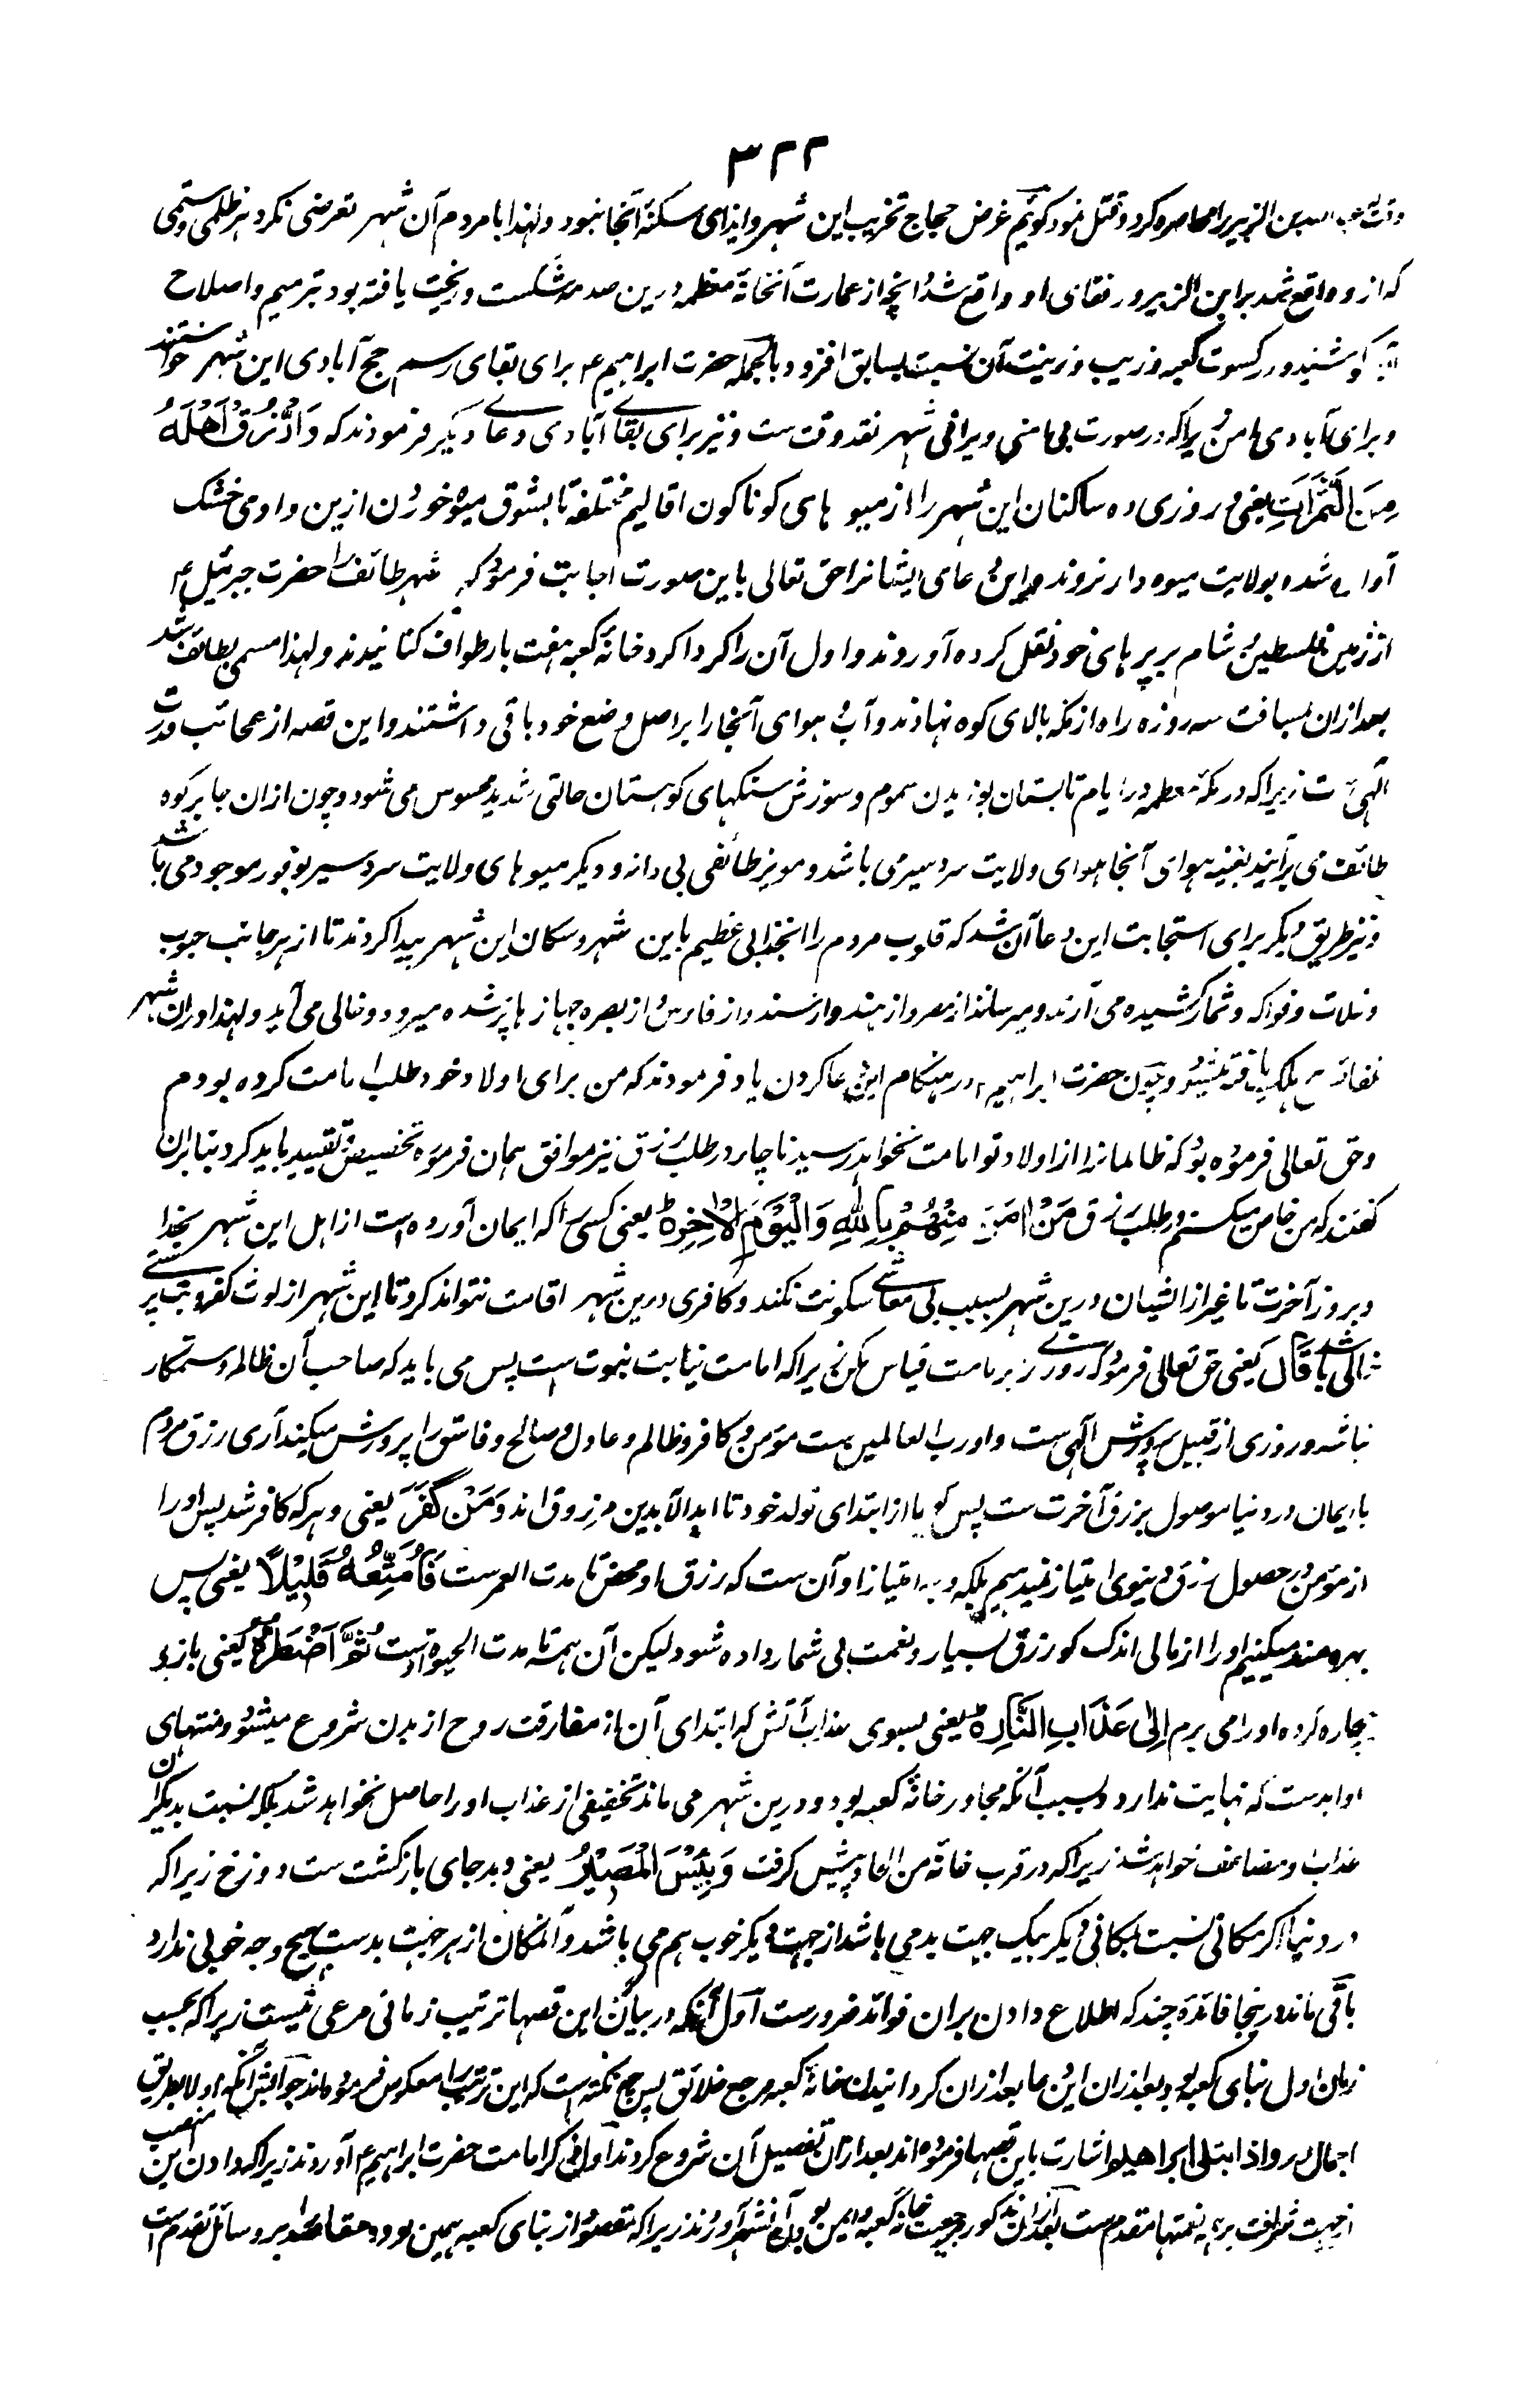 ٣٢٢
عبد الله بن الزبیر را محاصره کرد و قتل نمود گوئیم غرض حجاج تخریب این شهر و ایذای سکنهٔ آنجا نبود و لهذا با مردم آن شهر تعرضی نکرد هر ظلمی و ستمی
که از و واقع شد بر ابن الزبیر و رفقای او واقع شد و آنچه از عمارت آنخانهٔ معظمه درین صدمه شکست و ریخت یافته بود بترمیم و اصلاح
آن کوشید و در کسوت کعبه و زیب و زینت آن نسبت بسابق افزود بالجمله حضرت ابراهیم ع برای بقای رسم حج آبادی این شهر خواستند
و برای آبادی امن زیرا که در صورت بی امنی ویرانی شهر نقد وقت ست و نیز برای بقای آبادی دعای دیگر فرمودند که وَارْزُقْ اَهْلَهُ
مِنَ الثَّمَرَاتِ یعنی و روزی ده ساکنان این شهر را از میوه های گوناگون اقالیم مختلفه تا بشوق میوه خوردن ازین وادی خشک
آواره شده بولایت میوه دار نروند و این دعای ایشانرا حق تعالی باین صورت اجابت فرمود که شهر طائف را حضرت جبرئیل ع
از زمین فلسطین شام بر پرهای خود نقل کرده آوردند و اول آن را گرداگرد خانهٔ کعبه هفت بار طواف کنانیدند و لهذا مسمی بطائف شد
بعد ازان بمسافت سه روزه راه از مکه بالای کوه نهادند و آب و هوای آنجا را بر اصل وضع خود باقی داشتند و این قصه از عجائب قدرت
الٰهی ست زیرا که در مکهٔ معظمه در ایام تابستان بوزیدن سموم و سوزش سنگهای کوهستان حالتی شدید محسوس می شود و چون ازان جا بر کوه
طائف می برآیند بعینه هوای آنجا هوای ولایت سردسیر می باشد و مویز طائفی بی دانه و دیگر میوهای ولایت سردسیر بوفور موجود می باشد
و نیز طریق دیگر برای استجابت این دعا آن شد که قلوب مردم را انجذابی عظیم باین شهر و سکان این شهر پیدا کردند تا از هر جانب حبوب
و غلات و فواکه و ثمار کشیده می آرند و میرسانند از مصر و از هند و از سند و از فارس و از بصره جهازها پر شده میرود و خالی می آید و لهذا دران شهر
نفائس هر ملک یافته میشود و چون حضرت ابراهیم ع در هنگام این دعا کردن یاد فرمودند که من برای اولاد خود طلب امامت کرده بودم
و حق تعالی فرموده بود که ظالمانرا از اولاد تو امامت نخواهد رسید ناچار در طلب رزق نیز موافق همان فرموده تخصیص و تقیید باید کرد بنابران
گفتند که من خاص میکنم در طلب رزق مَنْ اٰمَنَ مِنْهُمْ بِاللّٰهِ وَالْیَوْمِ الْاٰخِرِ یعنی کسی را که ایمان آورده است از اهل این شهر بخدا
و بروز آخرت تا غیر از ایشان درین شهر بسبب بی معاشی سکونت نکند و کافری درین شهر اقامت نتواند کرد تا این شهر از لوث کفر و بت پرستی
خالی باشد قَالَ یعنی حق تعالی فرمود که روزی را بر امامت قیاس مکن زیرا که امامت نیابت نبوت است پس می باید که صاحب آن ظالم و ستمگار
نباشد و روزی از قبیل پرورش الٰهی ست و او رب العالمین ست مؤمن و کافر و ظالم و عادل و صالح و فاسق را پرورش میکند آری رزق مردم
با ایمان در دنیا موصول برزق آخرت ست پس گویا از ابتدای تولد خود تا ابد الآبدین مرزوق اند وَمَنْ كَفَرَ یعنی و هر که کافر شد پس او را
از مؤمن در حصول رزق دنیوی امتیاز نمیدهم بلکه وجه امتیاز او آن ست که رزق او محض تا مدت العمر ست فَاُمَتِّعُهُ قَلِیْلًا یعنی پس
بهره مند میکنیم او را از مالی اندک گو رزق بسیار و نعمت بی شمار داده شود لیکن آن همه تا مدت الحیوة است ثُمَّ اَضْطَرُّهُ یعنی باز
بیچاره کرده او را می برم اِلٰی عَذَابِ النَّارِ یعنی بسوی عذاب آتش که ابتدای آن از مفارقت روح از بدن شروع میشود و منتهای
او ابدست که نهایت ندارد و بسبب آنکه مجاور خانهٔ کعبه بود و درین شهر می ماند تخفیفی از عذاب او را حاصل نخواهد شد بلکه نسبت بدیگران
عذاب او مضاعف خواهد شد زیرا که در قرب خانهٔ من الحاد پیش گرفت وَبِئْسَ الْمَصِیْرُ یعنی و بد جای بازگشت ست دوزخ زیرا که
در دنیا اگر مکانی نسبت بمکانی دیگر بیک جهت بد می باشد از جهت دیگر خوب هم می باشد و آنمکان از هر جهت بدست هیچ وجه خوبی ندارد
باقی ماند درینجا فائدهٔ چند که اطلاع دادن بران فوائد ضرورست اول آنکه در بیان این قصها ترتیب زمانی مرعی نیست زیرا که بحسب
زمان اول بنای کعبه بود و بعد ازان این دعا بعد ازان گردانیدن خانهٔ کعبه مرجع خلائق پس چه نکته است که این ترتیب را معکوس فرموده اند جوابش آنکه اولا بطریق
اجمال در و اذ ابتلی ابراهیم اشارت باین قصها فرموده اند بعد ازان تفصیل آن شروع کردند اول ذکر امامت حضرت ابراهیم ع آوردند زیرا که دادن این منصب
از جهت شرافت بر همه نعمتها مقدم ست بعد ازان مذکور مرجعیت خانهٔ کعبه و امن بودن آنشهر آوردند زیرا که مقصود از بنای کعبه همین بود و مقاصد را بر وسائل تقدم است